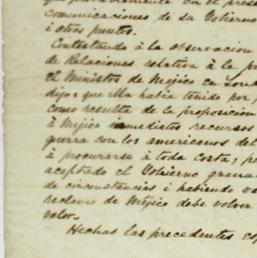 comunicaciones de su Gobierno
i otros puntos.
Contestando à la observacion
de Relaciones relativa à la
el Ministro de Mejico en
dijo: que ella habia tenido por
como resulta de la proposicion
à Mejico inmediatos recursos
guerra con los americanos del
à procurarse à toda costa;
aceptado el Gobierno
de circunstancias i habiendo
reclamo de Mejico debe volver
valor.
Hechas las precedentes